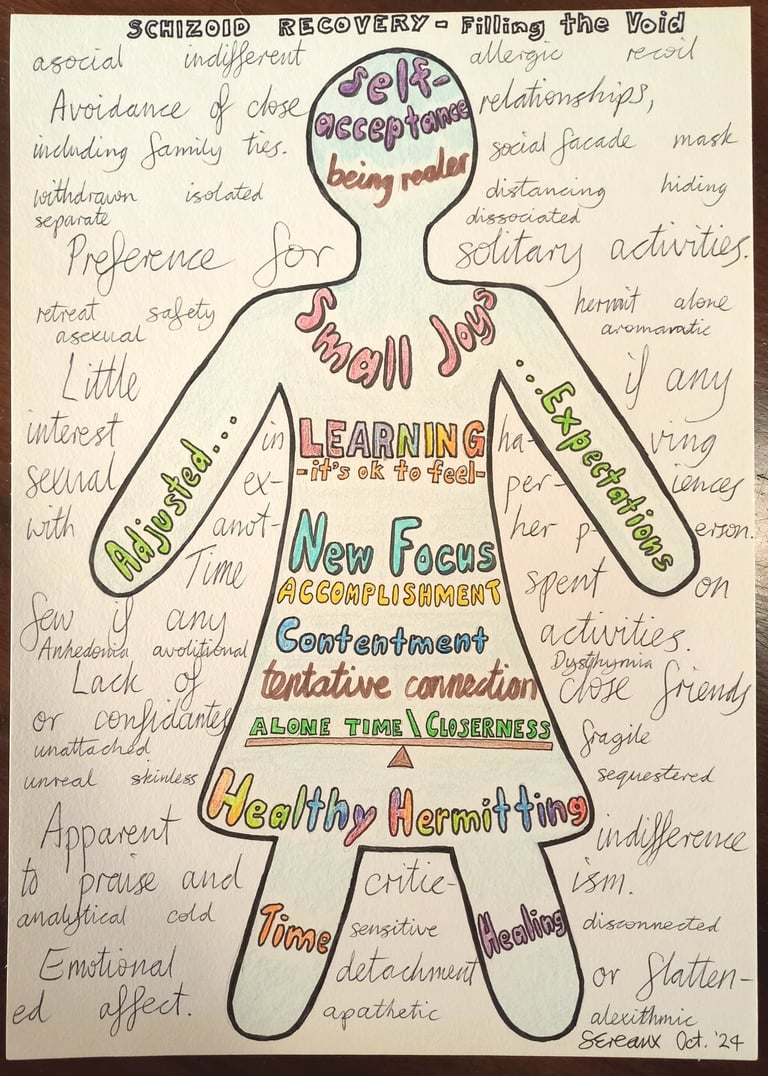 SCHIZOID RECOVERY - Filling the Void
asocial indifferent allergic recoil
Self-
acceptance
being realer
Avoidance of close relationships,
including family ties. social facade mask
withdrawn isolated distancing hiding
separate dissociated
Preference for solitary activities.
retreat safety hermit alone
asexual aromantic
Small Joys
Little if any
interest in ha- ving
sexual ex- per- iences
with anot- her p- erson.
Adjusted... ...Expectations
LEARNING
-it's ok to feel-
New Focus
ACCOMPLISHMENT
Contentment
tentative connection
ALONE TIME\CLOSERNESS
Healthy Hermitting
Time spent on
few if any activities.
Anhedonia avolitional Dysthymia
Lack of close friends
or confidantes fragile
unattached
unreal skinless sequestered
Apparent indifference
to praise and critic- ism.
analytical cold sensitive disconnected
Time Healing
Emotional detachment or flatten-
ed affect. apathetic alexithmic
Sereaux Oct. '24